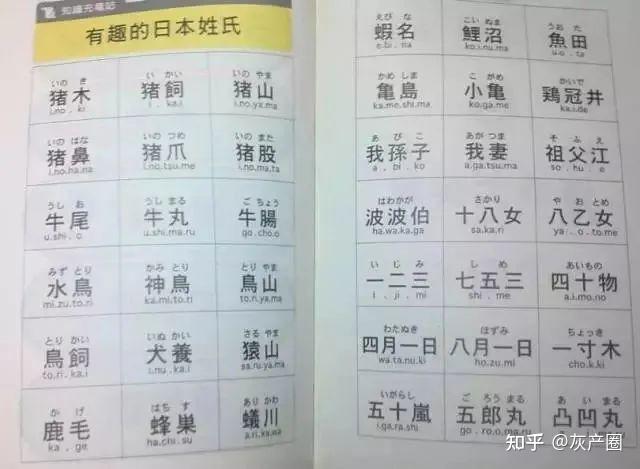 知識充電站
有趣的日本姓氏
いの き　い かい　いの やま
猪木　猪飼　猪山
i.no . ki　i . ka.i　i.no.ya.ma
いの はな　いの つめ　いの また
猪鼻　猪爪　猪股
i.no.ha.na　i.no.tsu.me　i.no.ma.ta
うし お　うし まる　ご ちょう
牛尾　牛丸　牛腸
u.shi . o　u.shi.ma.ru　go.cho.o
みず とり　かみ とり　とり やま
水鳥　神鳥　鳥山
mi.zu.to.ri　ka.mi.to.ri　to.ri.ya.ma
とり かい　いぬ かい　さる やま
鳥飼　犬養　猿山
to.ri.ka.i　i.nu.ka.i　sa.ru.ya.ma
か げ　はち す　あり かわ
鹿毛　蜂巢　蟻川
ka . ge　ha.chi.su　a.ri.ka.wa
えび な　こい ぬま　うお た
蝦名　鯉沼　魚田
e.bi . na　ko.i.nu.ma　u.o . ta
かめ しま　こ がめ　かいで
亀島　小亀　鶏冠井
ka.me.shi.ma　ko.ga.me　ka.i.de
あ び こ　あが つま　そ ふ え
我孫子　我妻　祖父江
a . bi . ko　a.ga.tsu.ma　so . hu . e
はわかが　さかり　や お とめ
波波伯　十八女　八乙女
ha.wa.ka.ga　sa.ka.ri　ya . o . to.me
い じ み　し め　あいもの
一二三　七五三　四十物
i . ji . mi　shi . me　a.i.mo.no
わたぬき　ほずみ　ちょっき
四月一日　八月一日　一寸木
wa.ta.nu.ki　ho.zu.mi　cho.k.ki
いがらし　ご ろう まる　あ い まる
五十嵐　五郎丸　凸凹丸
i.ga.ra.shi　go . ro.o.ma.ru　a . i . ma.ru
知乎 @灰产圈